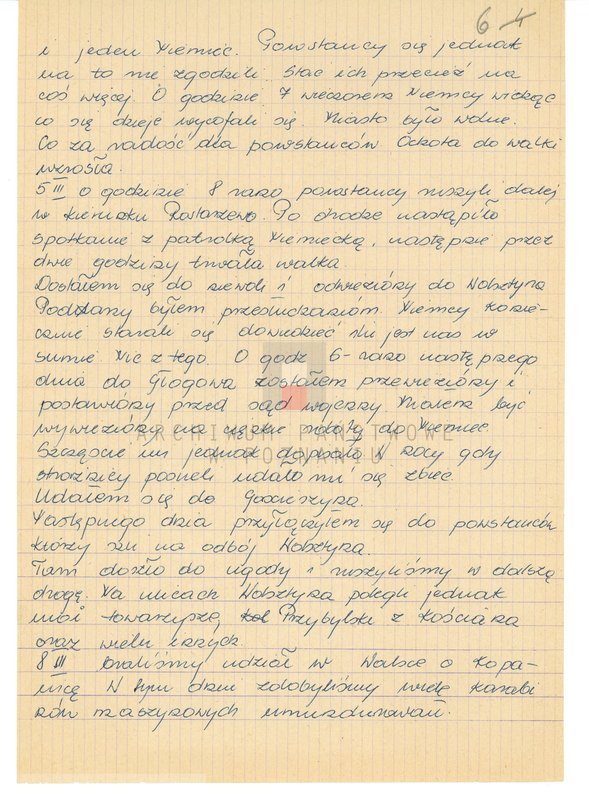 6 4
i jeden Niemiec. Powstańcy się jednak
na to nie zgodzili. Stać ich przecież na
coś więcej. O godzinie 7 wieczorem Niemcy widząc
co się dzieje wycofali się. Miasto było wolne.
Co za radość dla powstańców Ochota do walki
wzrosła.
5 III o godzinie 8 rano powstańcy ruszyli dalej
w kierunku Rostarzewo. Po drodze nastąpiło
spotkanie z patrolką Niemiecką, następnie przez
dwie godziny trwała walka.
Dostałem się do niewoli i odwieziony do Wolsztyna
Poddany byłem przesłuchaniom. Niemcy koniecz-
cznie starali się dowiedzieć ilu jest nas w
sumie Nic z tego. O godz 6- rano następnego
dnia do Głogowa zostałem przewieziony i
postawiony przed sąd wojenny. Miałem być
wywieziony na ciężkie roboty do Niemiec
Szczęście mi jednak dopisało W nocy gdy
strażnicy posneli udało mi się zbiec.
Udałem się do
Następnego dnia przyłączyłem się do powstańców
którzy szli na odbój Wolsztyna.
Tam doszło do ugody i ruszyliśmy w dalszą
drogę. Na ulicach Wolsztyna polegli jednak
moi towarzysze Przybylski z Kościana
oraz wielu innych.
8 III braliśmy udział w Walce o Kopa-
nicę W tym dniu zdobyliśmy wiele karabi
nów maszynowych umundurowań.
ARCHIWUM PAŃSTWOWE
W POZNANIU